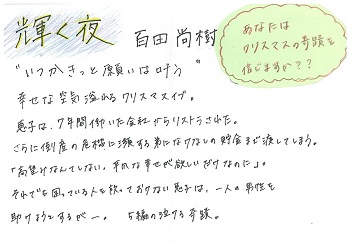 輝く夜 百田尚樹
あなたは
クリスマスの奇蹟を
信じますか??
"いつかきっと願いは叶う"
幸せな空気溢れるクリスマスイブ。
恵子は、7年間働いた会社からリストラされた。
さらに倒産の危機に瀕する弟になけなしの貯金まで渡してしまう。
「高望みなんてしない。平凡な幸せが欲しいだけなのに」。
それでも困っている人を放っておけない恵子は、一人の男性を
助けようとするが―。 5編の泣ける奇蹟。